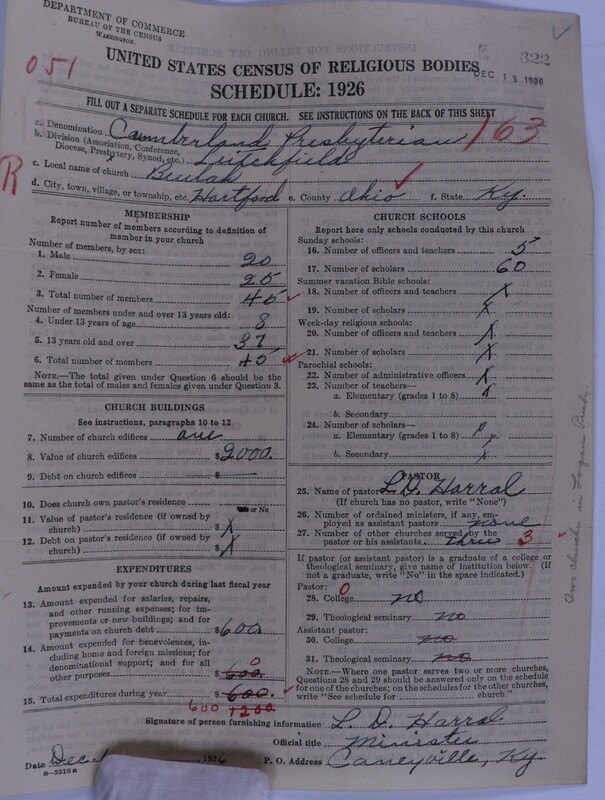 DEPARTMENT OF COMMERCE
BUREAU OF THE CENSUS
WASHINGTON
322
DEC 13 1926
051
UNITED STATES CENSUS OF RELIGIOUS BODIES
SCHEDULE: 1926
FILL OUT A SEPARATE SCHEDULE FOR EACH CHURCH. SEE INSTRUCTIONS ON THE BACK OF THIS SHEET
a. Denomination Cumberland Presbyterian 163
b. Division (Association, Conference, Diocese, Presbytery, Synod, etc.) Leitchfield
R
c. Local name of church Beulah
d. City, town, village, or township, etc. Hartford e. County Ohio f. State Ky.
MEMBERSHIP
Report number of members according to definition of member in your church
Number of members, by sex:
1. Male 20
2. Female 25
3. Total number of members 45
Number of members under and over 13 years old:
4. Under 13 years of age 8
5. 13 years old and over 37
6. Total number of members 45
NOTE.—The total given under Question 6 should be the same as the total of males and females given under Question 3.
CHURCH BUILDINGS
See instructions, paragraphs 10 to 12
7. Number of church edifices one
8. Value of church edifices $2000.
9. Debt on church edifices $
10. Does church own pastor's residence or No
11. Value of pastor's residence (if owned by church) $ X
12. Debt on pastor's residence (if owned by church) $ X
EXPENDITURES
Amount expended by your church during last fiscal year
13. Amount expended for salaries, repairs, and other running expenses; for improvements or new buildings; and for payments on church debt $600
14. Amount expended for benevolences, including home and foreign missions; for denominational support; and for all other purposes $ 600. 0
15. Total expenditures during year $ 600.
600 1200
CHURCH SCHOOLS
Report here only schools conducted by this church
Sunday schools:
16. Number of officers and teachers 5
17. Number of scholars 60
Summer vacation Bible schools:
18. Number of officers and teachers X
19. Number of scholars X
Week-day religious schools:
20. Number of officers and teachers X
21. Number of scholars X
Parochial schools:
22. Number of administrative officers X
23. Number of teachers—
a. Elementary (grades 1 to 8)
b. Secondary
24. Number of scholars—
a. Elementary (grades 1 to 8)
b. Secondary X
PASTOR
25. Name of pastor L. D. Harral
(If church has no pastor, write "None")
26. Number of ordained ministers, if any, employed as assistant pastors none
27. Number of other churches served by the pastor or his assistants three 3
If pastor (or assistant pastor) is a graduate of a college or theological seminary, give name of institution below. (If not a graduate, write "No" in the space indicated.)
Pastor: 0
28. College no
29. Theological seminary no
Assistant pastor:
30. College no
31. Theological seminary no
NOTE.—Where one pastor serves two or more churches, Questions 28 and 29 should be answered only on the schedule for one of the churches; on the schedules for the other churches, write "See schedule for church."
Signature of person furnishing information L. D. Harral
Official title Minister
Date Dec. 1926 P. O. Address Caneyville, Ky.
8—3319a
churches in Logan Presby.